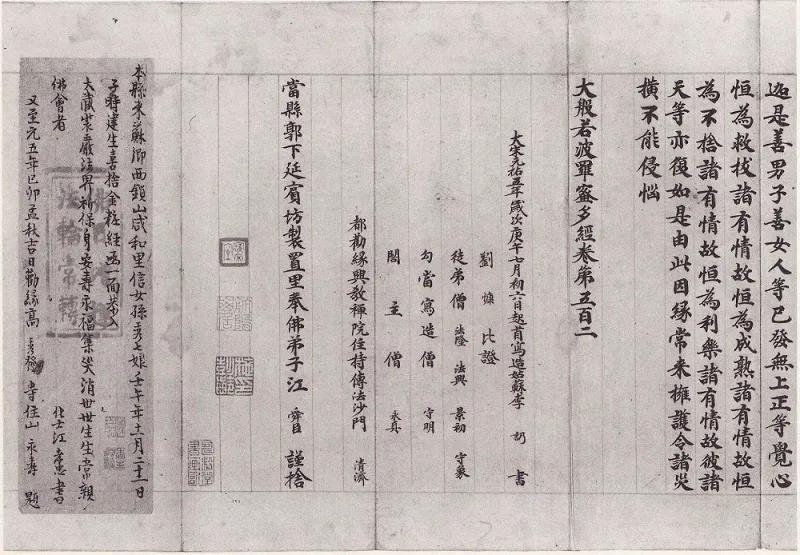 迦是善男子善女人等已發無上正等覺心
恒為救拔諸有情故恒為成熟諸有情故恒
為不捨諸有情故恒為利樂諸有情故彼諸
天等亦復如是由此因緣常來擁護令諸災
橫不能侵惱
大般若波羅蜜多經卷第五百二
大宋元祐五年歲次庚午七月初六日起首寫造姑蘇李 書
劉 比證
徒弟僧 法隆 法興 景初 守象
勾當寫造僧 守明
閣主僧 永真
都勸緣興教禪院住持傳法沙門 清濟
當縣郭下延賓坊製置里奉佛弟子江 舜臣 謹捨
本縣東蘇鄉西鎖山咸和里信女孫 七娘壬午年十一月二十一日
子時建生喜捨金粧經函一面恭入
大藏裝嚴法界祈保身安壽永福集災消世世生生常親
佛會者 化士江 書
又至元五年己卯孟秋吉日勸緣高 寺住山永壽 題
法輪常轉